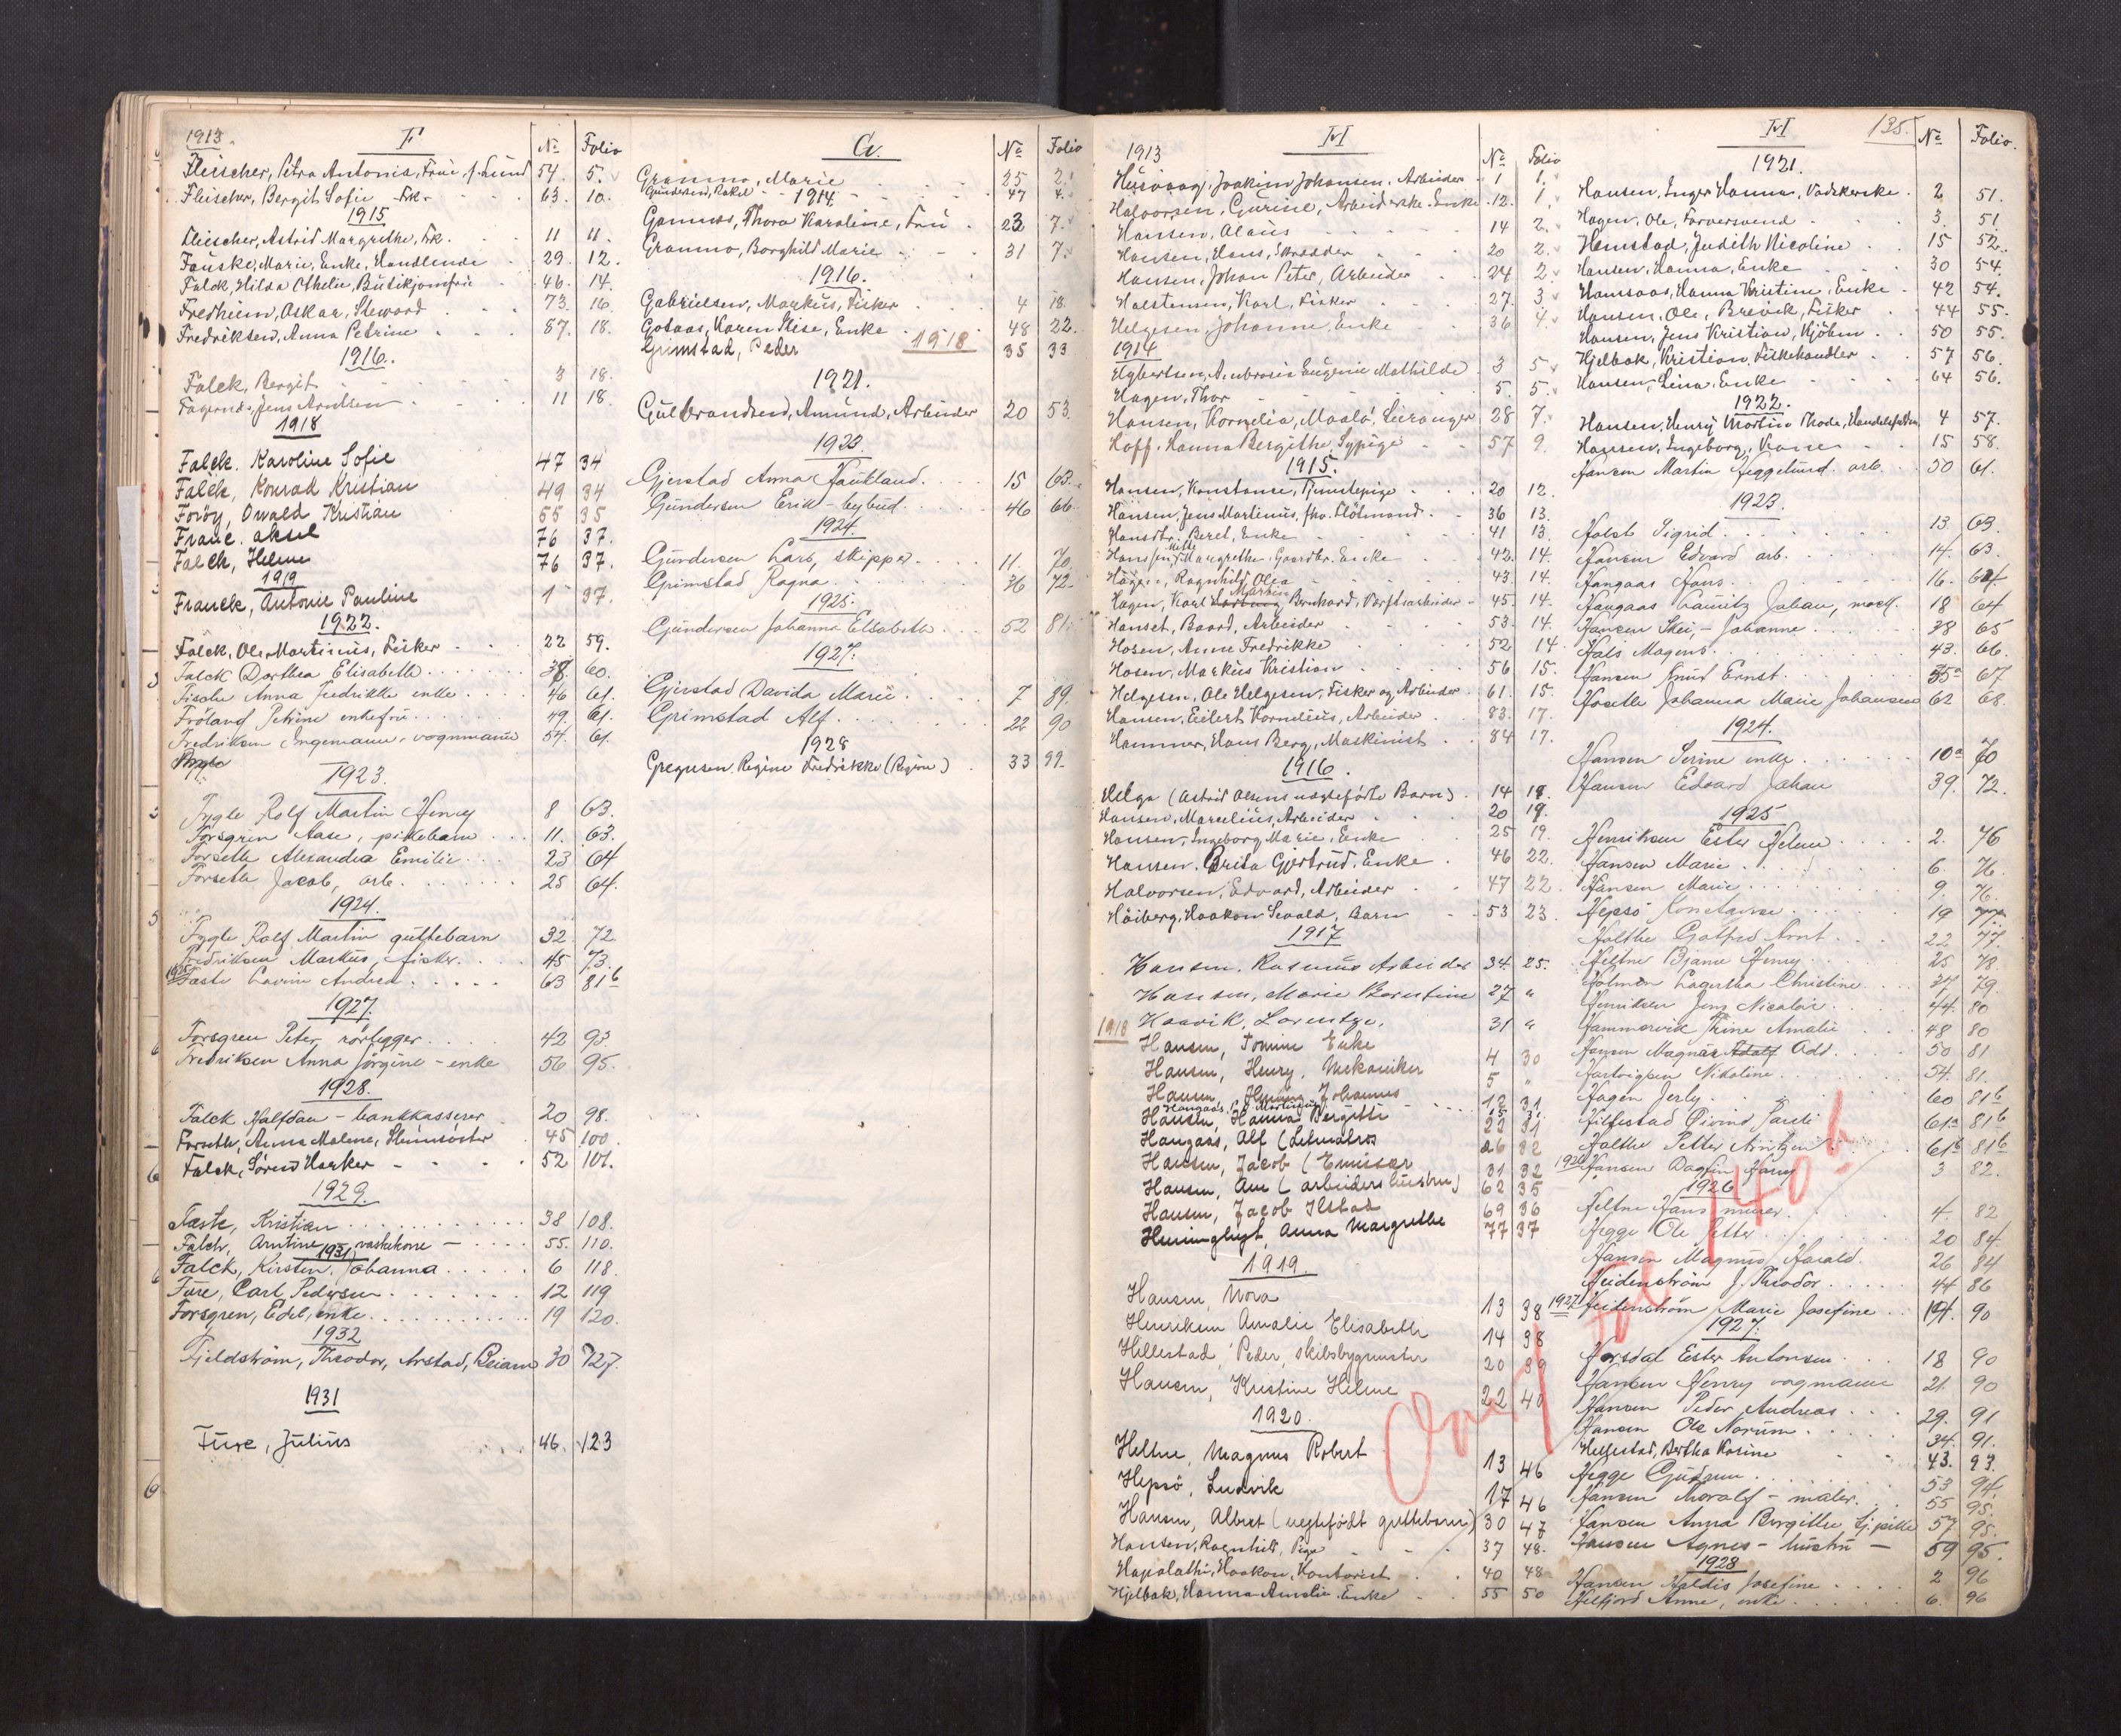 1913. F № Folio
Fleischer, Petra Antonia, Frue, f. Lund 54. 5.
Fleischer, Bergit Sofie Frk. 63. 10.
1915
Fleischer, Astrid Margrethe, Frk. 11 11.
Fauske, Marie, Enke, Handlende 29. 12.
Falck, Hilda Othelie, Butikjomfru 46. 14.
Fredheim, Oskar, Steward 73. 16.
Fredriksen, Anna Petrine 87. 18.
1916.
Falck, Bergit 3 18.
Fagernes, Jens Arntsen 11 18.
1918
Falck. Karoline Sofie 47 34
Falck, Konrad Kristian 49 34
Forøy, Oswald Kristian 55 35
Franc. aksel 76 37.
Falck, Helene 76 37.
1919
Franck, Antonie Pauline 1 37.
1922.
Falck, Ole Martinus, Fisker 22 59.
Falck Dorthea Elisabeth 38. 60.
Fische Anna Fredrikke enke 46 61.
Fröland Petrine enkefru 49. 61.
Fredriksen Ingemann, vognmann 54. 61.
1923.
Fygle Rolf Martin Henry 8 63.
Forsgren Aase, pikebarn 11. 63.
Forseth Alexandra Emilie 23 64
Forseth Jacob, arb. 25 64.
1924.
Fygle Rolf Martin guttebarn 32. 72
Fredriksen Markus, fisker. 45 73.
1925 Fæste Lovine Andrea 63 81b
1927.
Forsgren Peter rørlegger 42 93.
Fredriksen Anna Jörgine - enke 56 95.
1928.
Falck Halfdan - bankkasserer 20 98.
Forseth, Anna Malene, Steinsöster 45 100.
Falck, Sören Harker 52 101.
1929.
Fæste, Kristian 38 108.
Falch, Arntine vaskekone 55. 110.
1931
Falck, Kirsten, Johanna 6 118.
Fure, Carl Pedersen 12 119
Forsgren, Edel, enke 19 120.
1932
Fjeldström, Theodor, Arstad, Beiarn 30 127.
1931
Fure, Julius 46. 123
G. № Folio
Grammo, Marie 25 2.
Gundersen, Rakel 47 4.
1914.
Gamnes, Thora Karoline, Fru 23 7.
Granmo, Borghild Marie 31 7.
1916.
Gabrielsen, Markus, Fisker 4 18.
Gotaas, Karen Elise, Enke 48 22.
Grimstad, Peder 1918 35 33
1921.
Gulbrandsen, Amund, Arbeider 20 53.
1923.
Gjerstad Anna Faukland 15 63.
Gundersen Erik - bybud 46 66.
1924.
Gundersen Lars, skipper 11. 70.
Grimstad Ragna 36 72.
1925.
Gundersen Johanna Elisabeth 52 81.
1927.
Gjerstad Davida Marie 7 89.
Grimstad Alf 22 90
1928
Gregusen Regine Fredrikke (Regine) 33 99.
1913 H № Folio
Husvaag, Joakim Johansen, Arbeider 1 1.
Halvorsen, Gurine, Arbeiderske, Enke 12. 1.
Hansen, Olaus 14 2.
Hansen, Hans, Skrædder 20 2.
Hansen, Johan Peter, Arbeider 24 2
Halstensen, Karl, Fisker 27. 3
Helgesen, Johanne, Enke 36 4
1914
Egbertsen, Ambrosia Eugenie Mathilde 3 5
Hagen, Thor 5. 5.
Hansen, Kornelia, Maalö, Leiranger 28 7.
Hoff. Hanna Bergithe, Sypige 57 9.
1915.
Hansen, Konstanse, Tjenestepige 20 12.
Hansen, Jens Martinus, fhv. Slötmand 36 13.
Hansdtr. Beret, Enke 41 13.
Hansen, Mette Margrethe, Gaardbr. Enke 42. 14.
Hagen, Ragnhild Olea 43. 14.
Hagen, Karl Martin Bernhard, Værftsarbeider 45. 14.
Hanset, Baard, Arbeider 53. 14.
Hosen, Anne Fredrikke 52 14
Hosen, Markus Kristian 56 15.
Helgesen, Ole Helgesen, Fisker og Arbeider 61. 15.
Hansen, Eilert Kornelius, Arbeider 83. 17.
Hammer, Hans Berg, Maskinist 84 17.
1916.
Helga (Astrid Olsens uægtefödte Barn) 14 18.
Hansen, Marcelius, Arbeider 20 19.
Hansen, Ingeborg Marie, Enke 25 19.
Hansen, Berita Gjertrud, Enke 46 22.
Halvorsen, Edvard, Arbeider 47 22.
Höiberg, Haakon Sevald, Barn 53 23.
1917
Hansen, Rasmus Arbeider 34. 25.
Hansen, Marie Berntine 27 "
Haavik, Lorentze. 31 "
1918
Hansen, Tomine Enke 4 30
Hansen, Henry, Mekaniker 5 "
Hansen, Henning Johannes 12 31
Hansen, Hanna Bergitte 22 31
Haugaas, Alf (Letmatros 26 32
Hansen, Jacob (Emissær 31 32
Hansen, Ane (arbeiders hustru) 62 35
Hansen, Jacob Ilstad 69 36
Heminghyt, Anna Margrethe 77 37
1919.
Hansen, Nora 13 38
Henriksen Amalie Elisabeth 14 38
Hellestad, Peder, skibsbygmester 20 39
Hansen, Kristine Helene 22 40
1920.
Heltne, Magnus Robert 13 46
Hepsö, Ludvik 17 46
Hansen, Albert (uegtefødt guttebarn) 30 47
Hansen, Ragnhild, Pige 37 48.
Hapalathi, Haakon, Kontorist 40 48
Hjelbak, Hanna Amalie, Enke 55 50
H 135. № Folio.
1921.
Hansen, Inger Hanna, Vaskerske 2 51.
Hagen, Ole, Farversvend 3. 51
Hemstad, Judith Nicoline 15 52.
Hansen, Hanna, Enke 30 54.
Hansaas, Hanna Kristine, Enke 42 54.
Hansen, Ole, Brevik, Fisker 44 55.
Hansen, Jens Kristian, Kjöbm. 50 55.
Hjelbak, Kristian, Fiskehandler 57 56.
Hansen, Lina, Enke 64 56.
1922.
Hansen, Henry Martin Thode, Handelsfuldm. 4 57.
Hansen, Ingeborg, Kone 15 58.
Hansen Martin Heggelund arb. 50 61.
1923.
Holst Sigrid 13 63.
Hansen Edvard arb. 14. 63.
Haugaas Hans 16. 64
Haugaas Lauritz Johan, 18 64
Hansen Skei, - Johanne 38 65
Hals Magnus 43. 66.
Hansen Knut Ernst 35a 67
Hoseth Johanna Marie Johansen 62 68.
1924.
Hansen Serine enke 10a 70
Hansen Edvard Johan 39. 72.
1925
Henriksen Ester Helene 2. 76
Hansen Marie 6. 76.
Hansen Marie 9. 76.
Hepsö Konstanse 19 77.
Holthe Gotfred Arnt 22 77.
Heltne Bjarne Henry 25 78
Holmen Lagertha Christine 37 79.
Henriksen Jens Nicolai 44. 80
Hammervik Trine Amalie 48 80
Hansen Magnar Adolf Odd 50 81
Hartvigsen Nikoline 54. 81.
Hagen Jerly 60 81b
Hillestad Öivind 61a 81b
Holthe Petter Arntzen 61b 81b
1926 Hansen Dagfin Harry 3 82.
1926
Heltne Hans murer 4. 82
Hegge Ole Petter 20 84
Hansen Magnus Harald 26 84
Heidenström J. Theodor 44 86
1927 Heidenström Marie Josefine 14. 90
1927.
Horsdal Ester Antonsen 18 90
Hansen Henry vognmann 21. 90
Hansen Peder Andreas 29. 91
Hansen Ole Norum 34. 91.
Hellestad, Bertha Kasine 43. 93.
Hegge Gudrun 53 94.
Hansen Thoralf - maler 55 95.
Hansen Anna Bergitte tj.pike 57 95.
Hansen Agnes - hustru 59 95.
1928
Hansen Haldis Josefine 2 96
Helfjord Anne, enke 6. 96
Over fol 140b